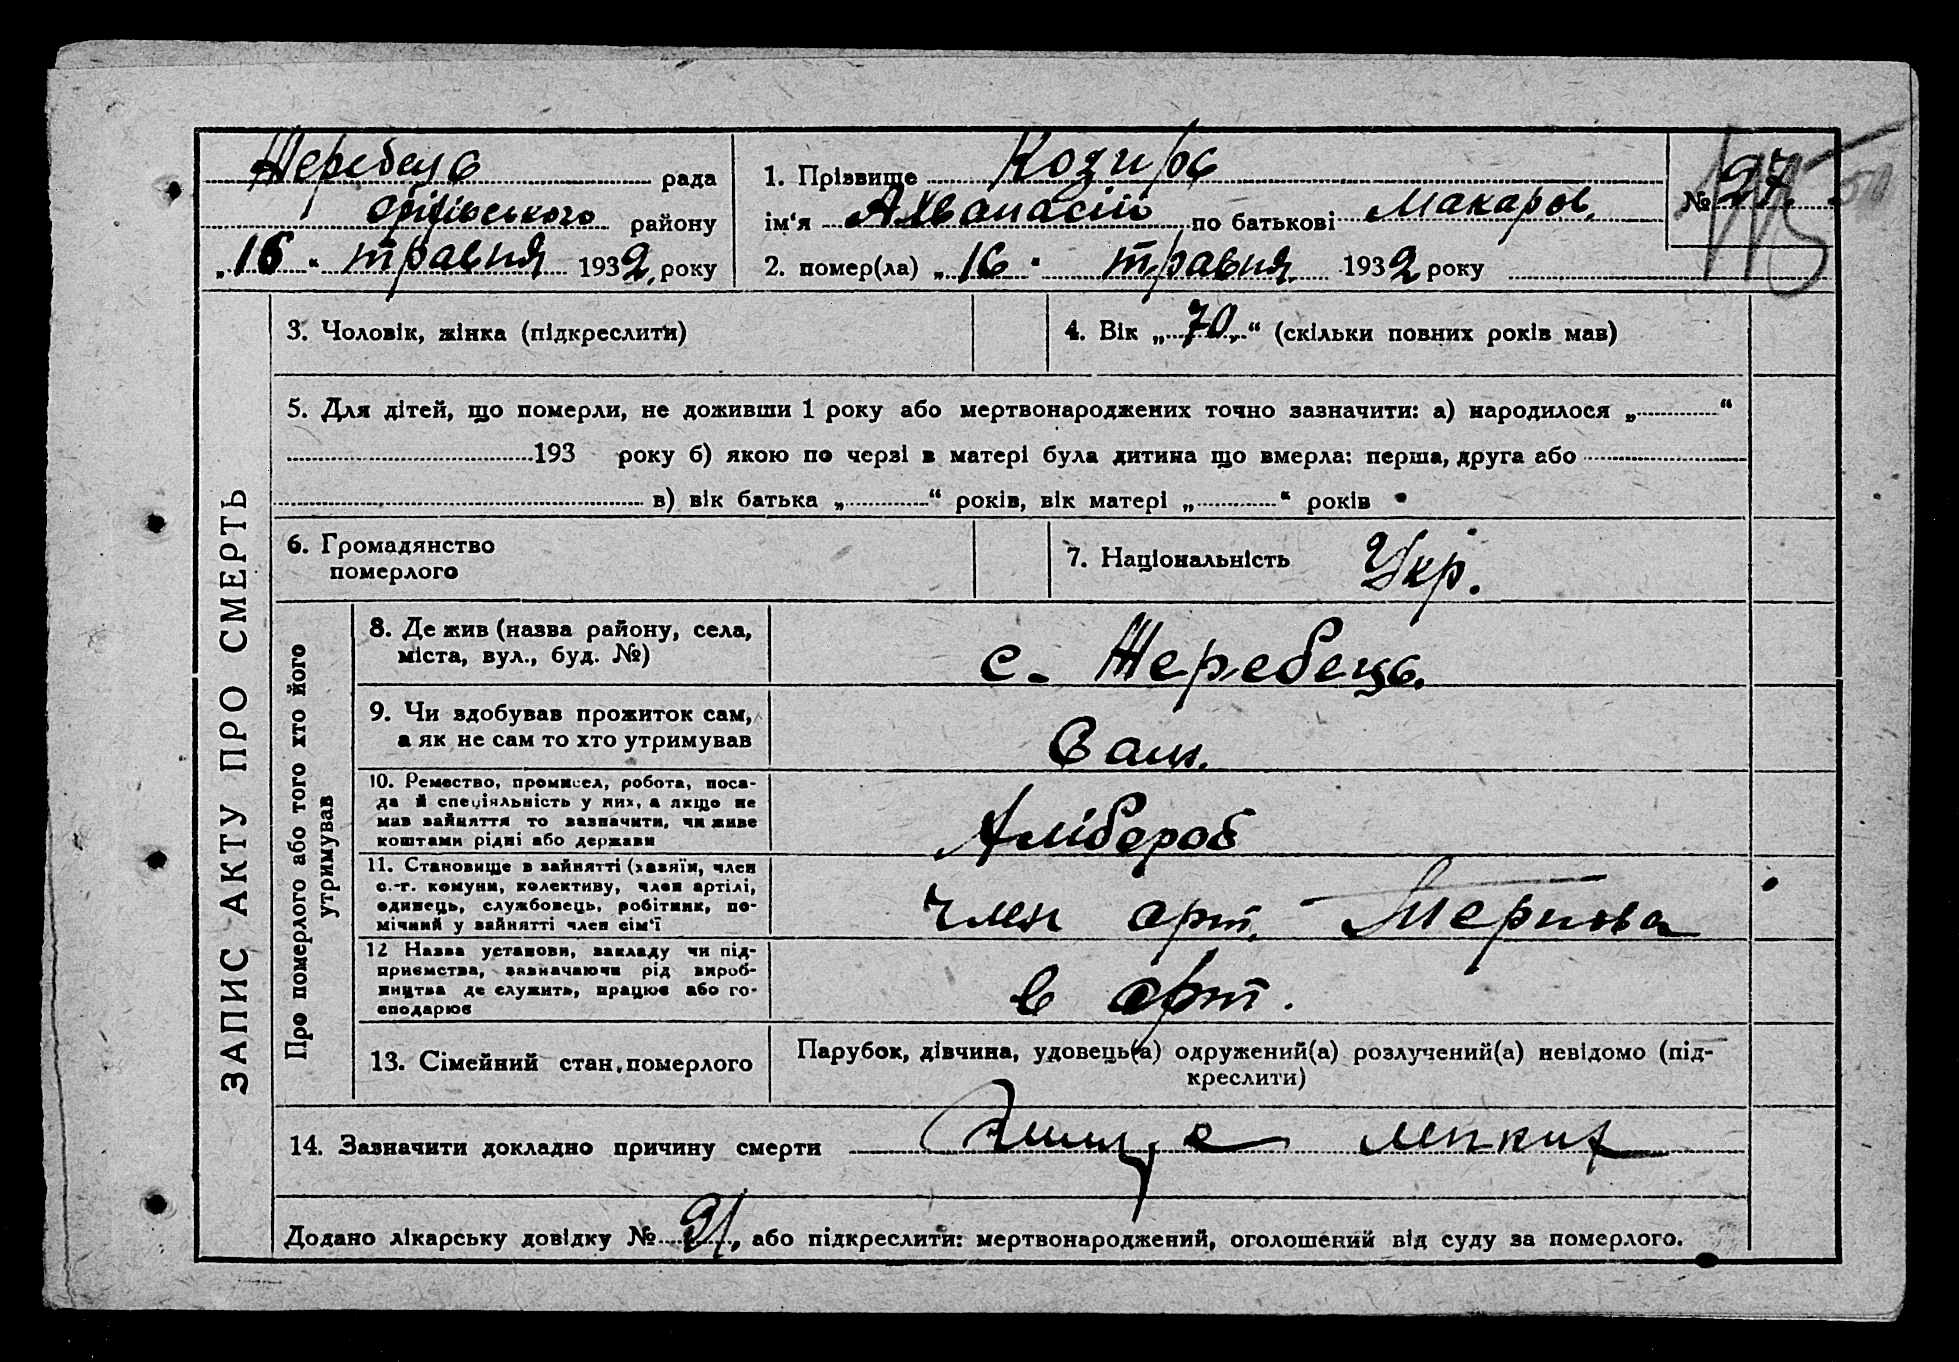 Жеребець рада
оріхівського району
„16“ травня 1932 року
1. Прізвище Козирь
ім‘я Ахванасій по батькові Макаров.
2. помер(ла) „16“ травня 1932 року
№ 27.
ЗАПИС АКТУ ПРО СМЕРТЬ
3. Чоловік, жінка (підкреслити)
4. Вік „70“ (скільки повних років мав)
5. Для дітей, що померли, не доживши 1 року або мертвонароджених точно зазначити: а) народилося „ “
193 року б) якою по черзі в матері була дитина що вмерла: перша, друга або
в) вік батька „ “ років, вік матері „ “ років
6. Громадянство
померлого
7. Національність Укр.
Про померлого або того хто його
утримував
8. Де жив (назва району, села,
міста, вул., буд. №)
с. Жеребець.
9. Чи здобував прожиток сам,
а як не сам то хто утримував
Сам.
10. Ремество, промисел, робота, поса-
да й спеціяльність у них, а якщо не
мав зайняття то зазначити, чи живе
коштами рідні або держави
Хлібороб
11. Становище в зайнятті (хазяїн, член
с.-г. комуни, колективу, член артілі,
одинець, службовець, робітник, по-
мічний у зайнятті член сім‘ї
член арт.
12 Назва установи, закладу чи під-
приємства, зазначаючи рід вироб-
ництва де служить, працює або го-
сподарює
в арт.
13. Сімейний стан померлого
Парубок, дівчина, удовець(а) одружений(а) розлучений(а) невідомо (під-
креслити)
14. Зазначити докладно причину смерти
Додано лікарську довідку № 21, або підкреслити: мертвонароджений, оголошений від суду за померлого.